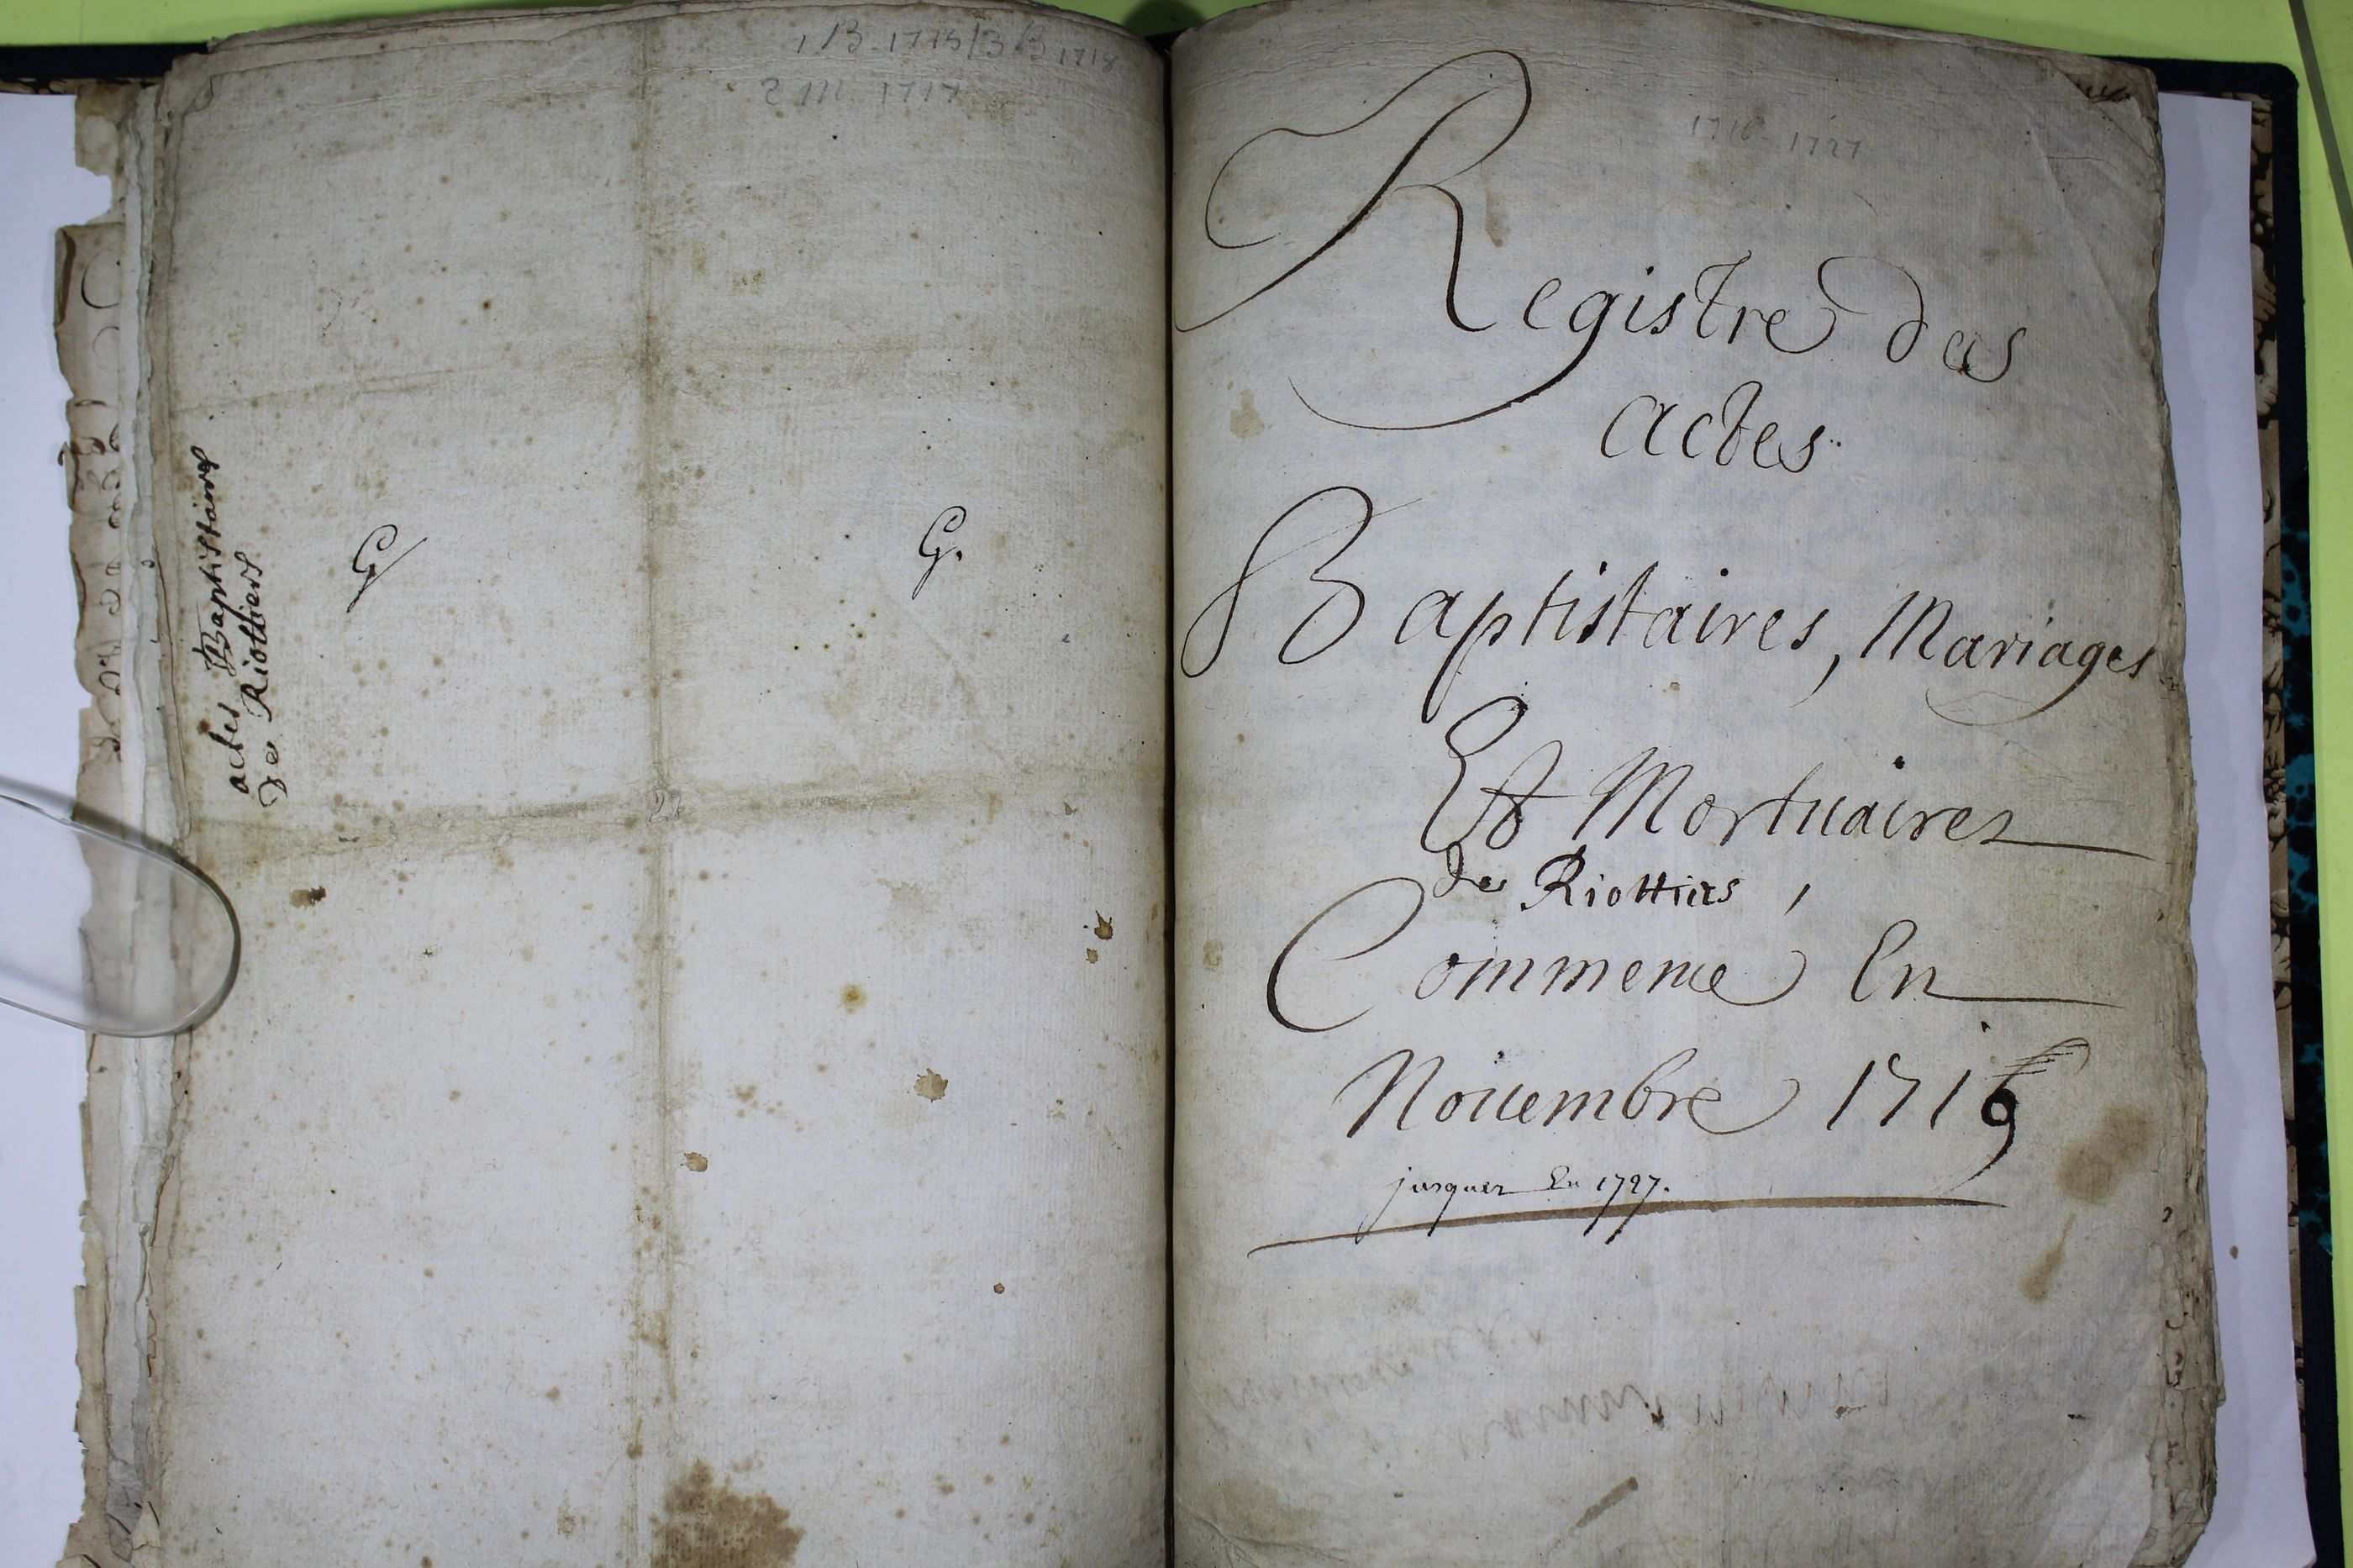 1 B. 1715/3 B 1718
2 M. 1717
actes Baptistaires
De Riottiers
G
G.
1716-1727
Registre des
actes
Baptistaires, Mariages
Et Mortuaires
de Riottiers,
Commence En
Nouembre 1716
jusques En 1727.